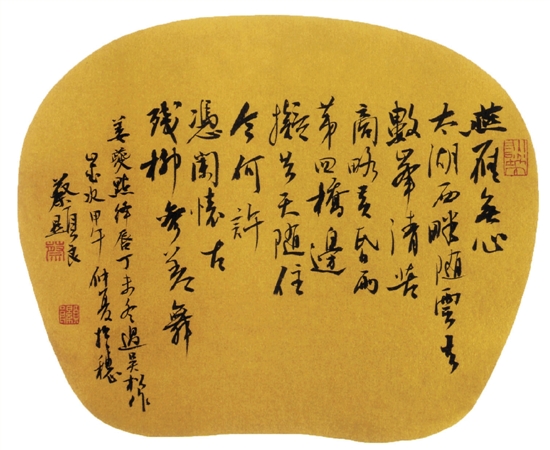 燕雁無心
太湖西畔随雲去
數峯清苦
商略黄昏雨
第四橋邊
擬共天随住
今何許
憑闌懷古
残柳參差舞
姜夔點绛唇丁未冬過吴松作
甲午仲夏於穗
蔡顯良